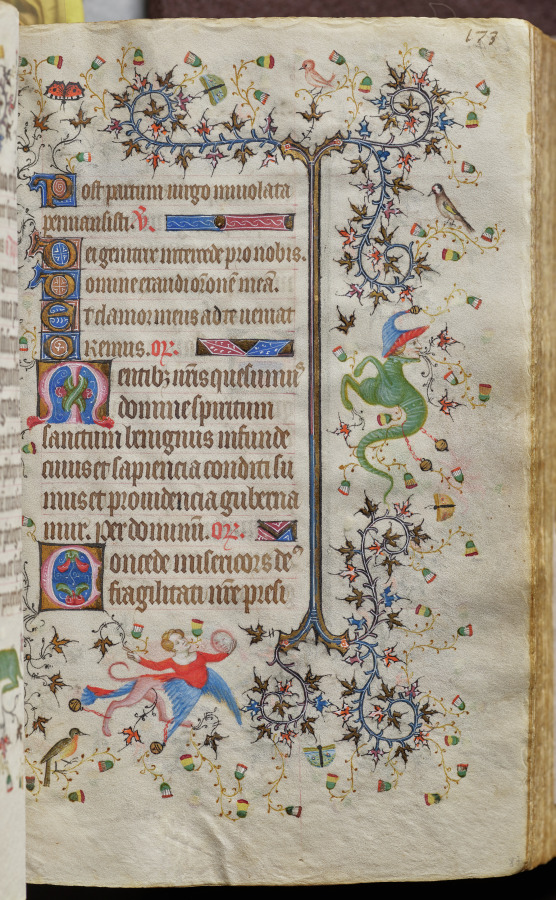 173
Post partum uirgo inuiolata
permansisti. V̓.
Dei genitrix intercede pro nobis.
Domine exaudi or̄onē meā.
Et clamor meus ad te ueniat
Oremus. or̄.
Mentibꝫ nr̄is quesumus
domine spiritum
sanctum benignus infunde
cuius et sapiencia conditi su
mus et prouidencia guberna
mur. Per dominum. or̄.
Concede misericors de
fragilitati nr̄e presi